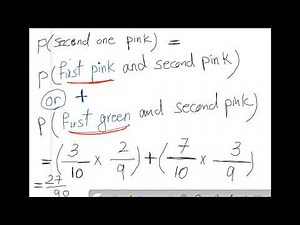 P(second one pink) =
P(first pink and second pink)
or +
P(first green and second pink)
= (3/10 × 2/9) + (7/10 × 3/9)
= 27/90